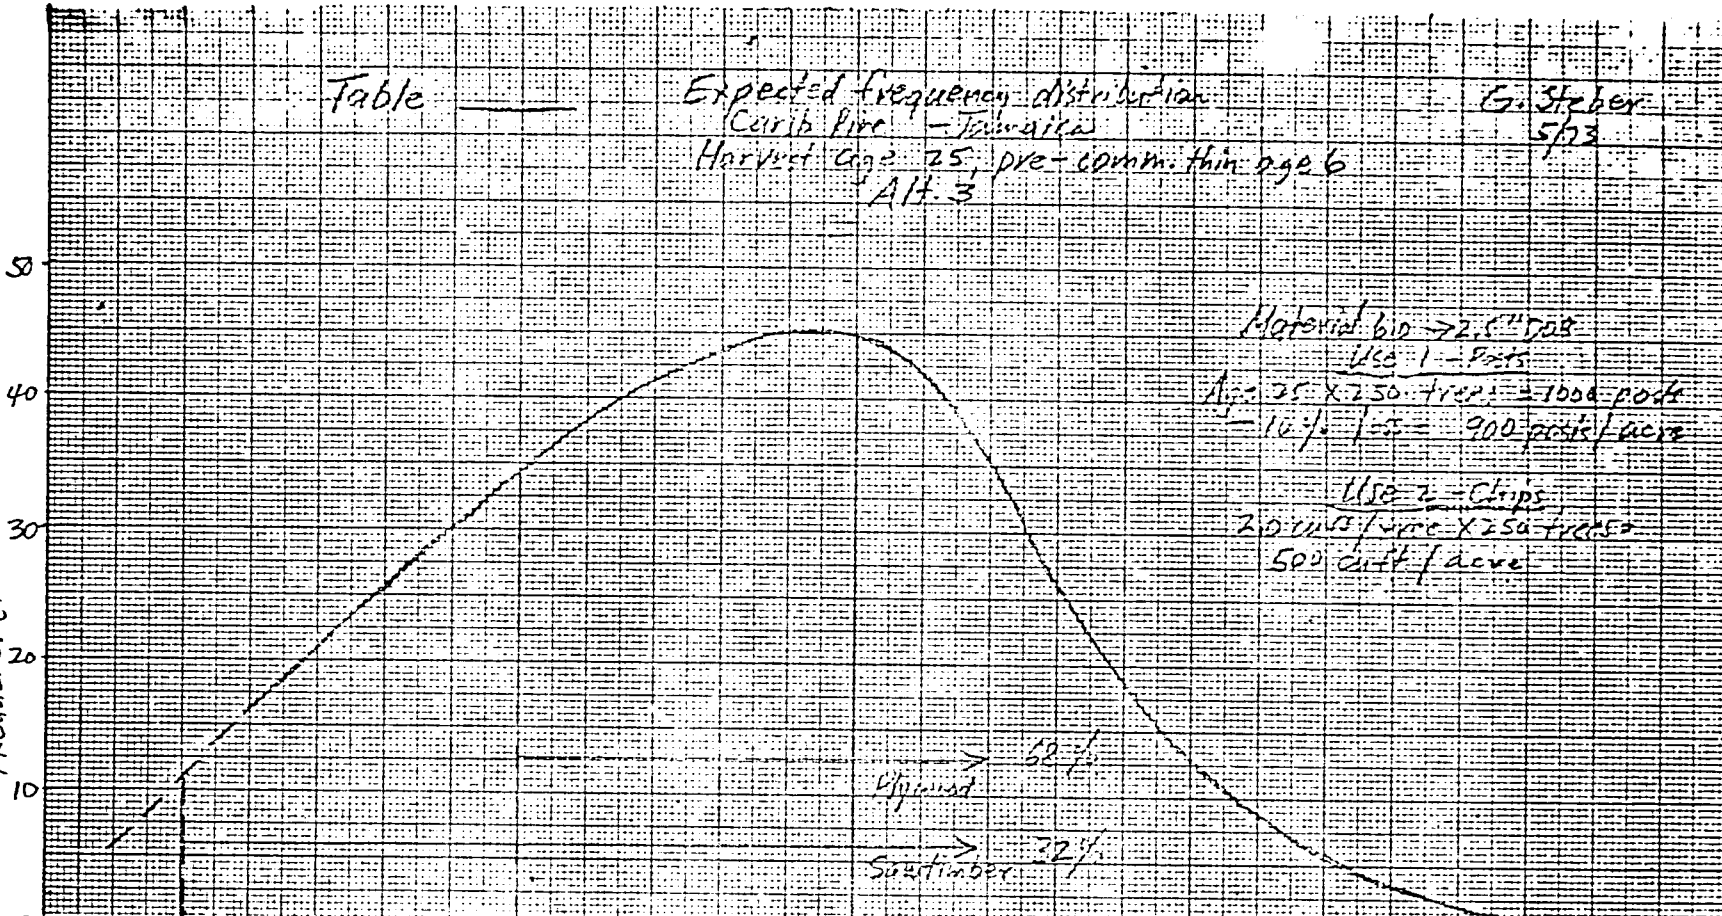 Table
Expected frequency distribution
Carib Pine - Jamaica
Harvest age 25, pre-comm. thin age 6
Alt. 3
G. Steber
5/73
50
40
30
20
10
Material 6.0 → 2.5" DOB
Use 1 - Posts
Age 25 X 250 trees = 1000 posts
- 10% loss = 900 posts/acre
Use 2 - Chips
2.0 cu ft/tree X 250 trees =
500 cu ft/acre
→ 68%
Plywood
→ 32%
Sawtimber